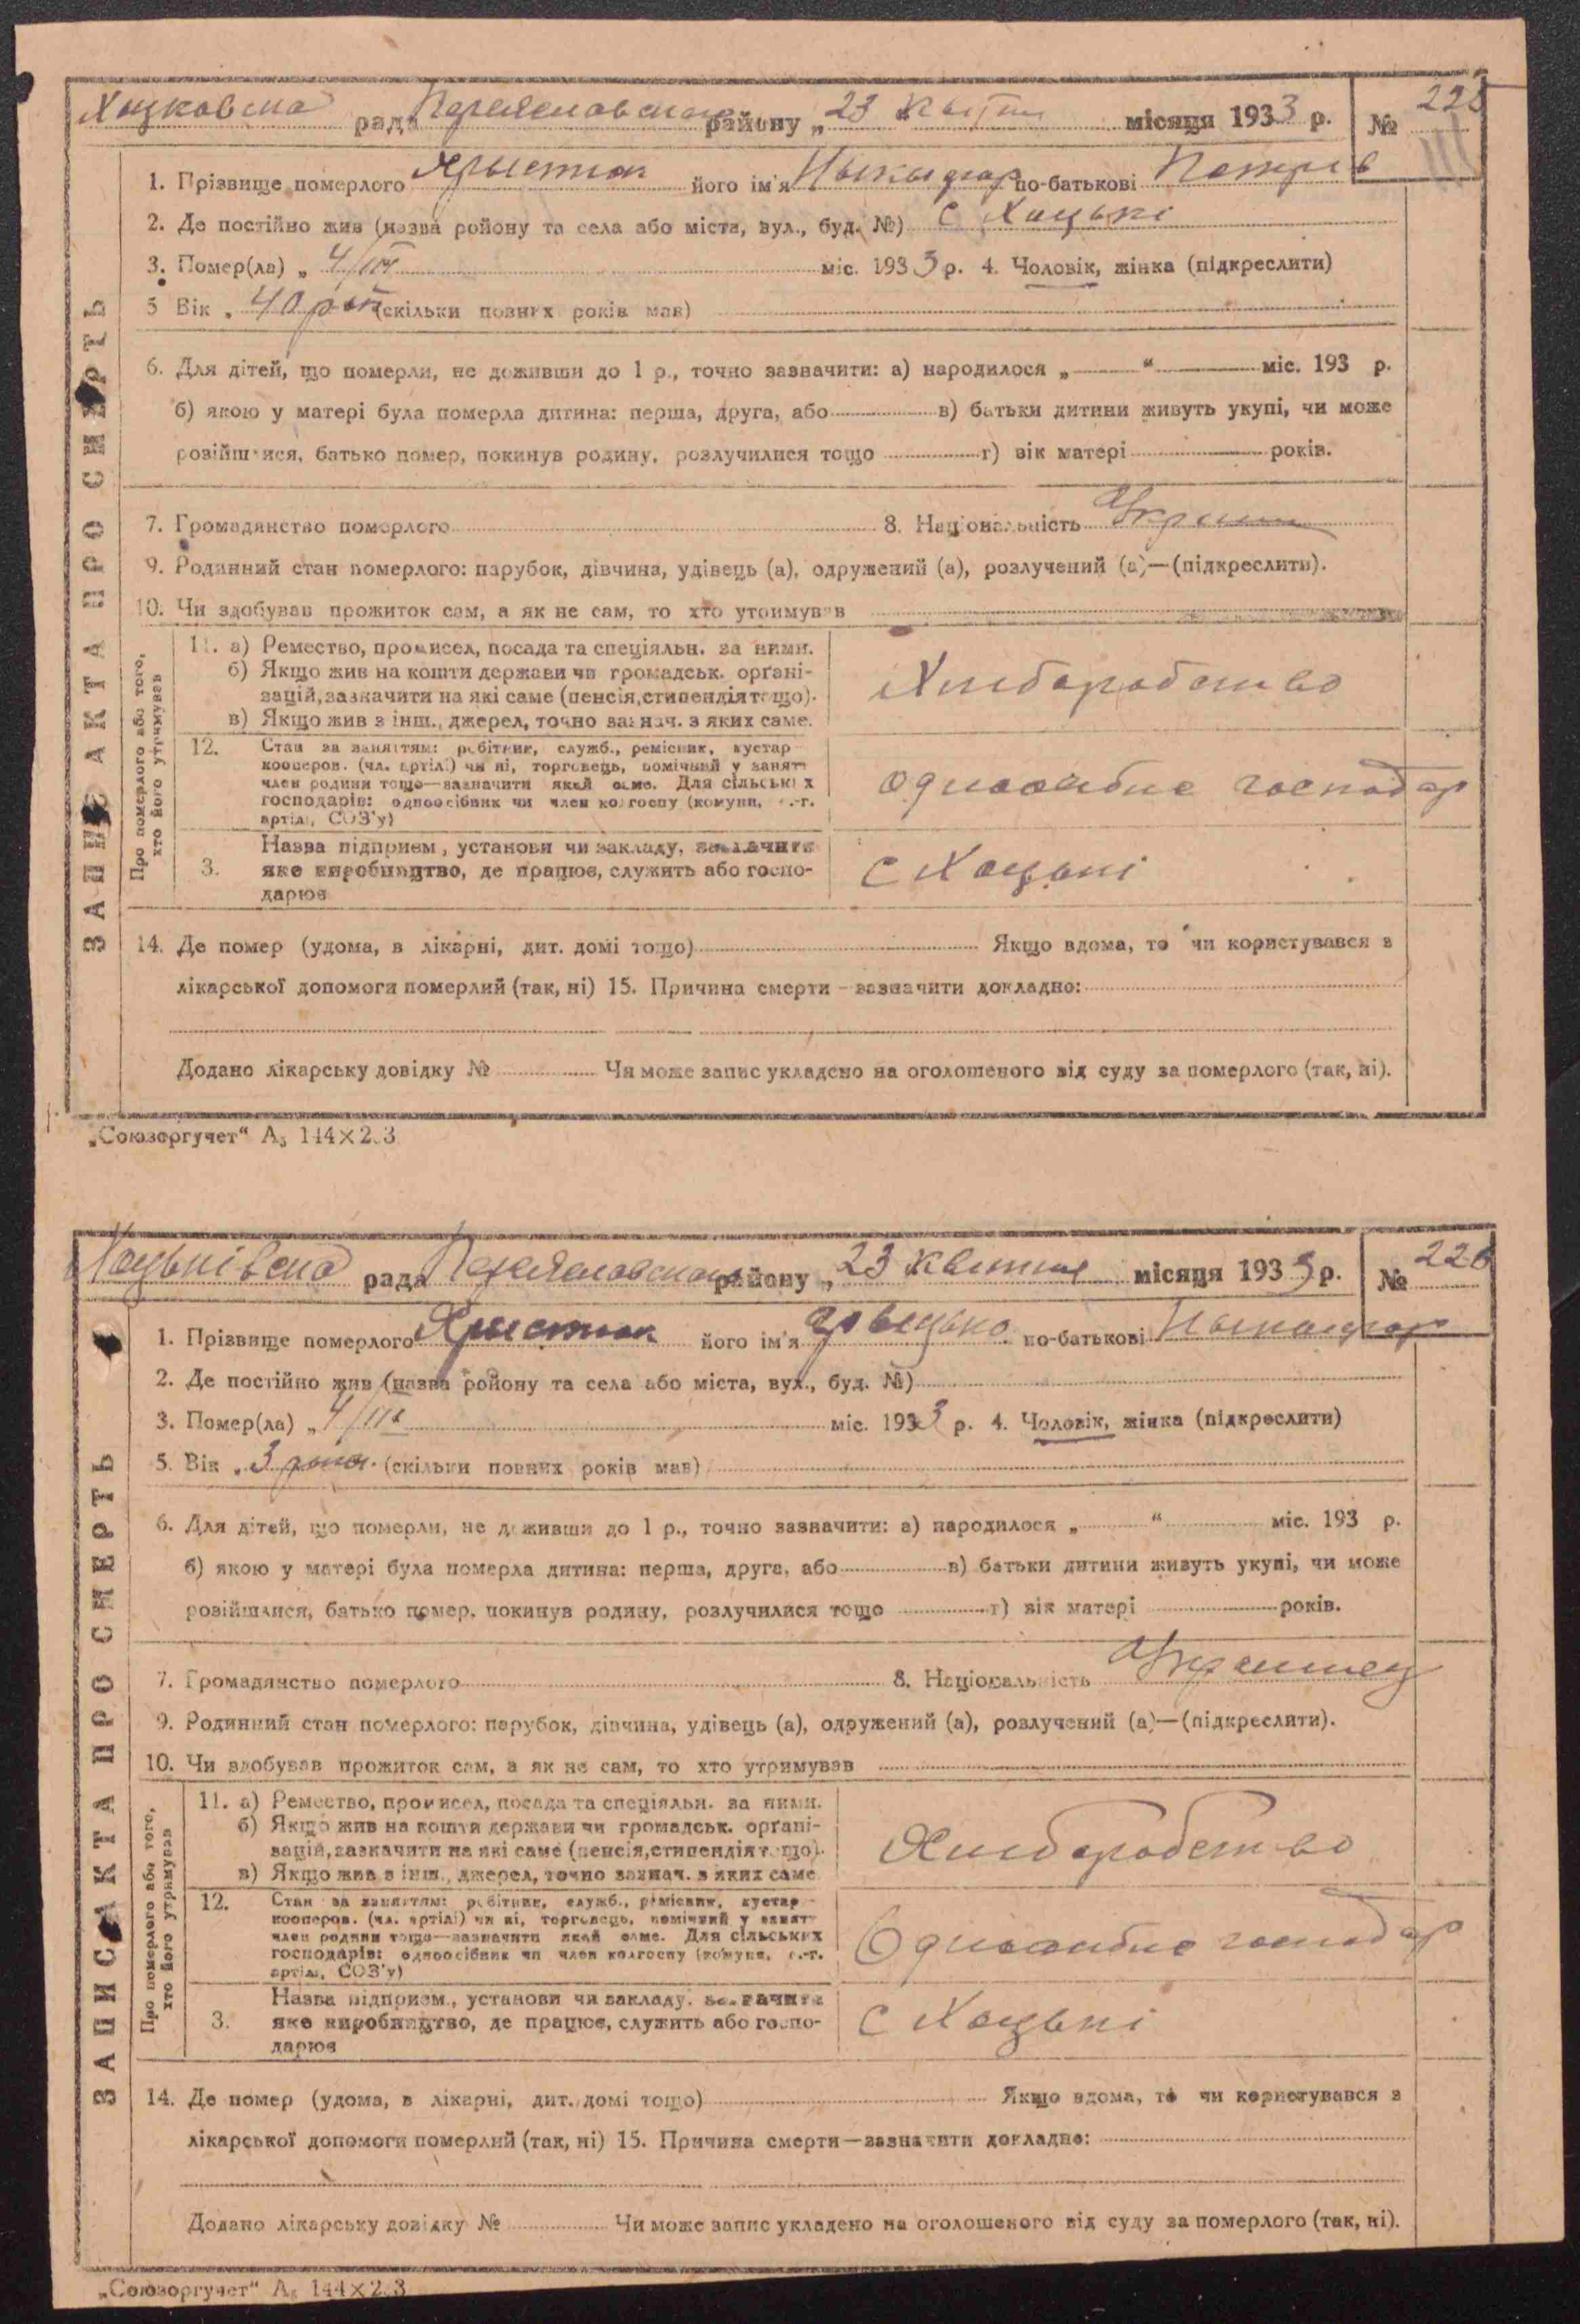 Хоцковска рада Переяславського району „ 23 " Квітня місяця 1933 р. № 225
1. Прізвище померлого Хрыстюк його ім'я Ныкыфор по-батькові Петрів
2. Де постійно жив (назва ройону та села або міста, вул., буд. №) С Хоцькі
3. Помер(ла) „ 4/III міс. 1933 р. 4. Чоловік, жінка (підкреслити)
5 Вік „ 40 рок (скільки повних років мав)
6. Для дітей, що померли, не доживши до 1 р., точно зазначити: а) народилося „ “ міс. 193 р.
б) якою у матері була померла дитина: перша, друга, або в) батьки дитини живуть укупі, чи може
розійшлися, батько помер, покинув родину, розлучилися тощо г) вік матері років.
7. Громадянство померлого 8. Національність
9. Родинний стан померлого: парубок, дівчина, удівець (а), одружений (а), розлучений (а)—(підкреслити).
10. Чи здобував прожиток сам, а як не сам, то хто утримував
ЗАПИС АКТА ПРО СМЕРТЬ
Про померлого або того, хто його утримував
11. а) Ремество, промисел, посада та спеціяльн. за ними.
б) Якщо жив на кошти держави чи громадськ. орґані-
зацій, зазначити на які саме (пенсія, стипендія тощо).
в) Якщо жив з інш., джерел, точно зазнач. з яких саме.
Хлиборобство
12. Стан за заняттям: робітник, служб., ремісник, кустар
кооперов. (чл. артілі) чи ні, торговець, помічний у занятт
член родини тощо—зазначити який саме. Для сільських
господарів: одноосібник чи член колгоспу (комуни, с.-г.
артілі, СОЗ'у)
одноосибне господар
3. Назва підприєм., установи чи закладу, зазначити
яке виробництво, де працює, служить або госпо-
дарює
С Хоцькі
14. Де помер (удома, в лікарні, дит. домі тощо) Якщо вдома, то чи користувався з
лікарської допомоги померлий (так, ні) 15. Причина смерти—зазначити докладно:
Додано лікарську довідку № Чи може запис укладено на оголошеного від суду за померлого (так, ні).
„Союзоргучет“ А₅ 144×203
Хоцьківска рада Переяславського району „ 23 Квитня місяця 1933 р. № 226
1. Прізвище померлого Хрыстюк його ім'я по-батькові Ныкыфор
2. Де постійно жив (назва ройону та села або міста, вул., буд. №)
3. Помер(ла) „ 4/III міс. 1933 р. 4. Чоловік, жінка (підкреслити)
5. Вік „ 3 роки (скільки повних років мав)
6. Для дітей, що померли, не доживши до 1 р., точно зазначити: а) народилося „ “ міс. 193 р.
б) якою у матері була померла дитина: перша, друга, або в) батьки дитини живуть укупі, чи може
розійшлися, батько помер, покинув родину, розлучилися тощо г) вік матері років.
7. Громадянство померлого 8. Національність
9. Родинний стан померлого: парубок, дівчина, удівець (а), одружений (а), розлучений (а)—(підкреслити).
10. Чи здобував прожиток сам, а як не сам, то хто утримував
ЗАПИС АКТА ПРО СМЕРТЬ
Про померлого або того, хто його утримував
11. а) Ремество, промисел, посада та спеціяльн. за ними.
б) Якщо жив на кошти держави чи громадськ. орґані-
зацій, зазначити на які саме (пенсія, стипендія тощо).
в) Якщо жив з інш., джерел, точно зазнач. з яких саме
Хлиборобство
12. Стан за заняттям: робітник, служб., ремісник, кустар
кооперов. (чл. артілі) чи ні, торговець, помічний у занятт
член родини тощо—зазначити який саме. Для сільських
господарів: одноосібник чи член колгоспу (комуни, с.-г.
артілі, СОЗ'у)
Одноосибне господар
3. Назва підприєм., установи чи закладу, зазначити
яке виробництво, де працює, служить або госпо-
дарює
С Хоцькі
14. Де помер (удома, в лікарні, дит. домі тощо) Якщо вдома, то чи користувався з
лікарської допомоги померлий (так, ні) 15. Причина смерти—зазначити докладно:
Додано лікарську довідку № Чи може запис укладено на оголошеного від суду за померлого (так, ні).
„Союзоргучет“ А₅ 144×203